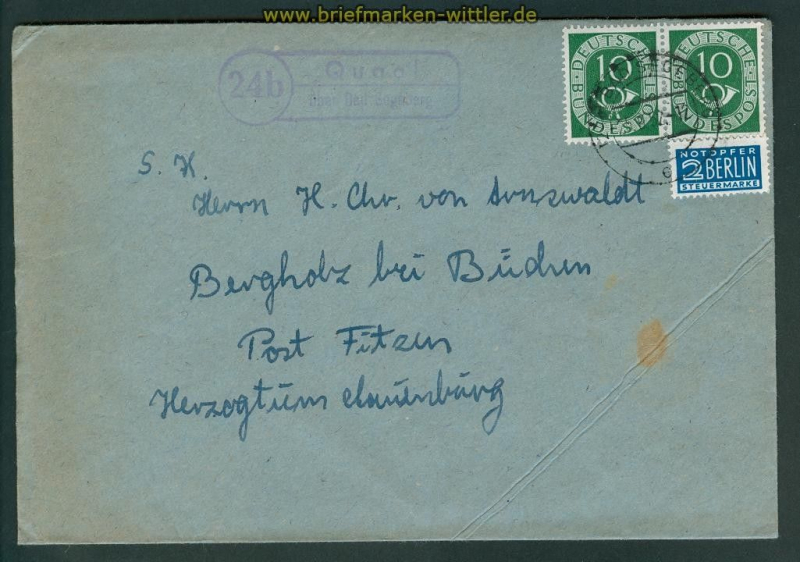 www.briefmarken-wittler.de
24b
Quaal
über Bad Segeberg
10 10
DEUTSCHE BUNDESPOST
DEUTSCHE BUNDESPOST
NOTOPFER
2 BERLIN
STEUERMARKE
S. H.
Herrn H. Chr. von Arnswaldt
Bergholz bei Büchen
Post Fitzen
Herzogtum Lauenburg